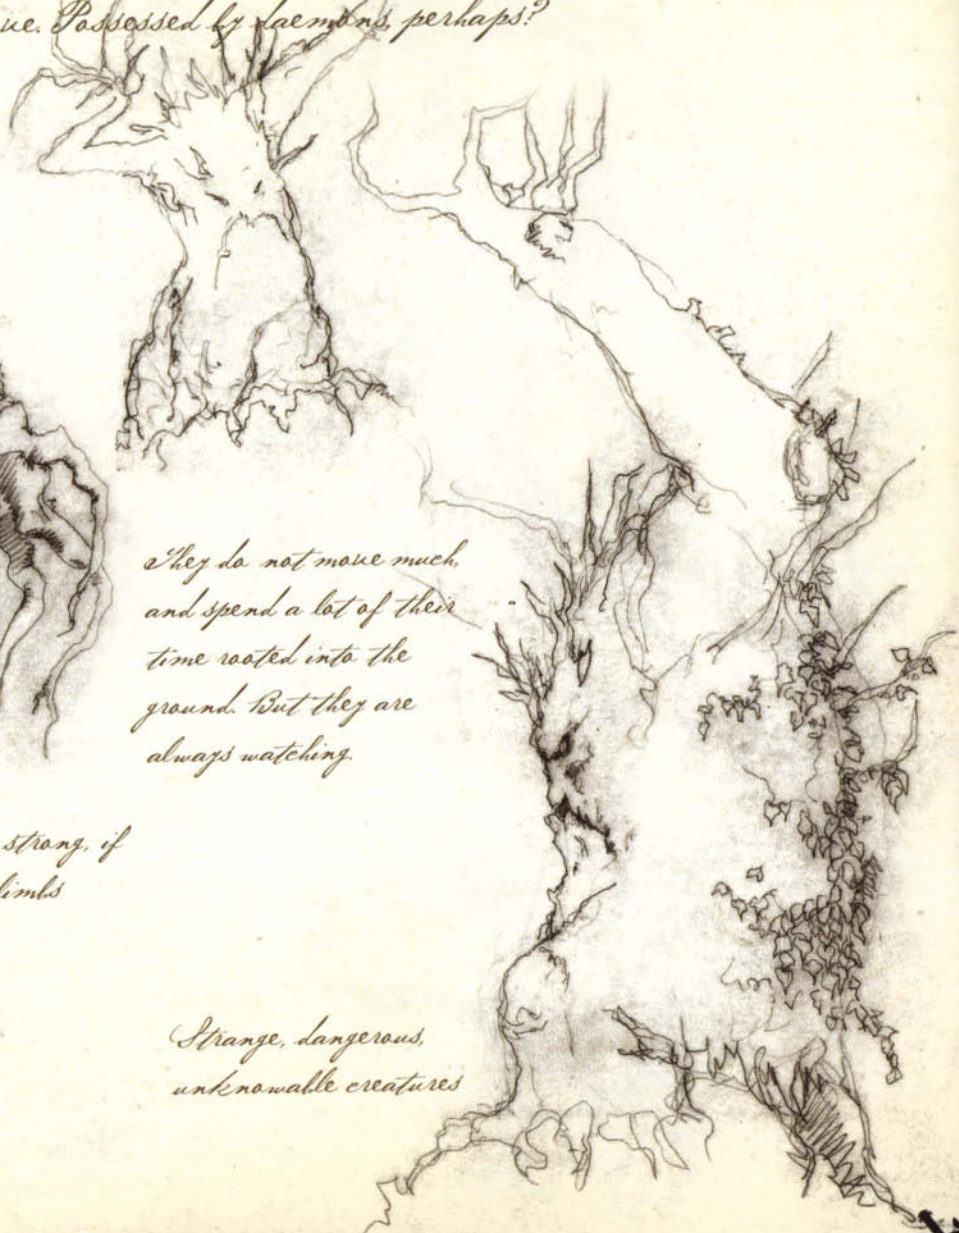 ue. Possessed by daemons, perhaps?
They do not move much,
and spend a lot of their
time rooted into the
ground. But they are
always watching.
strong, if
limbs
Strange, dangerous,
unknowable creatures